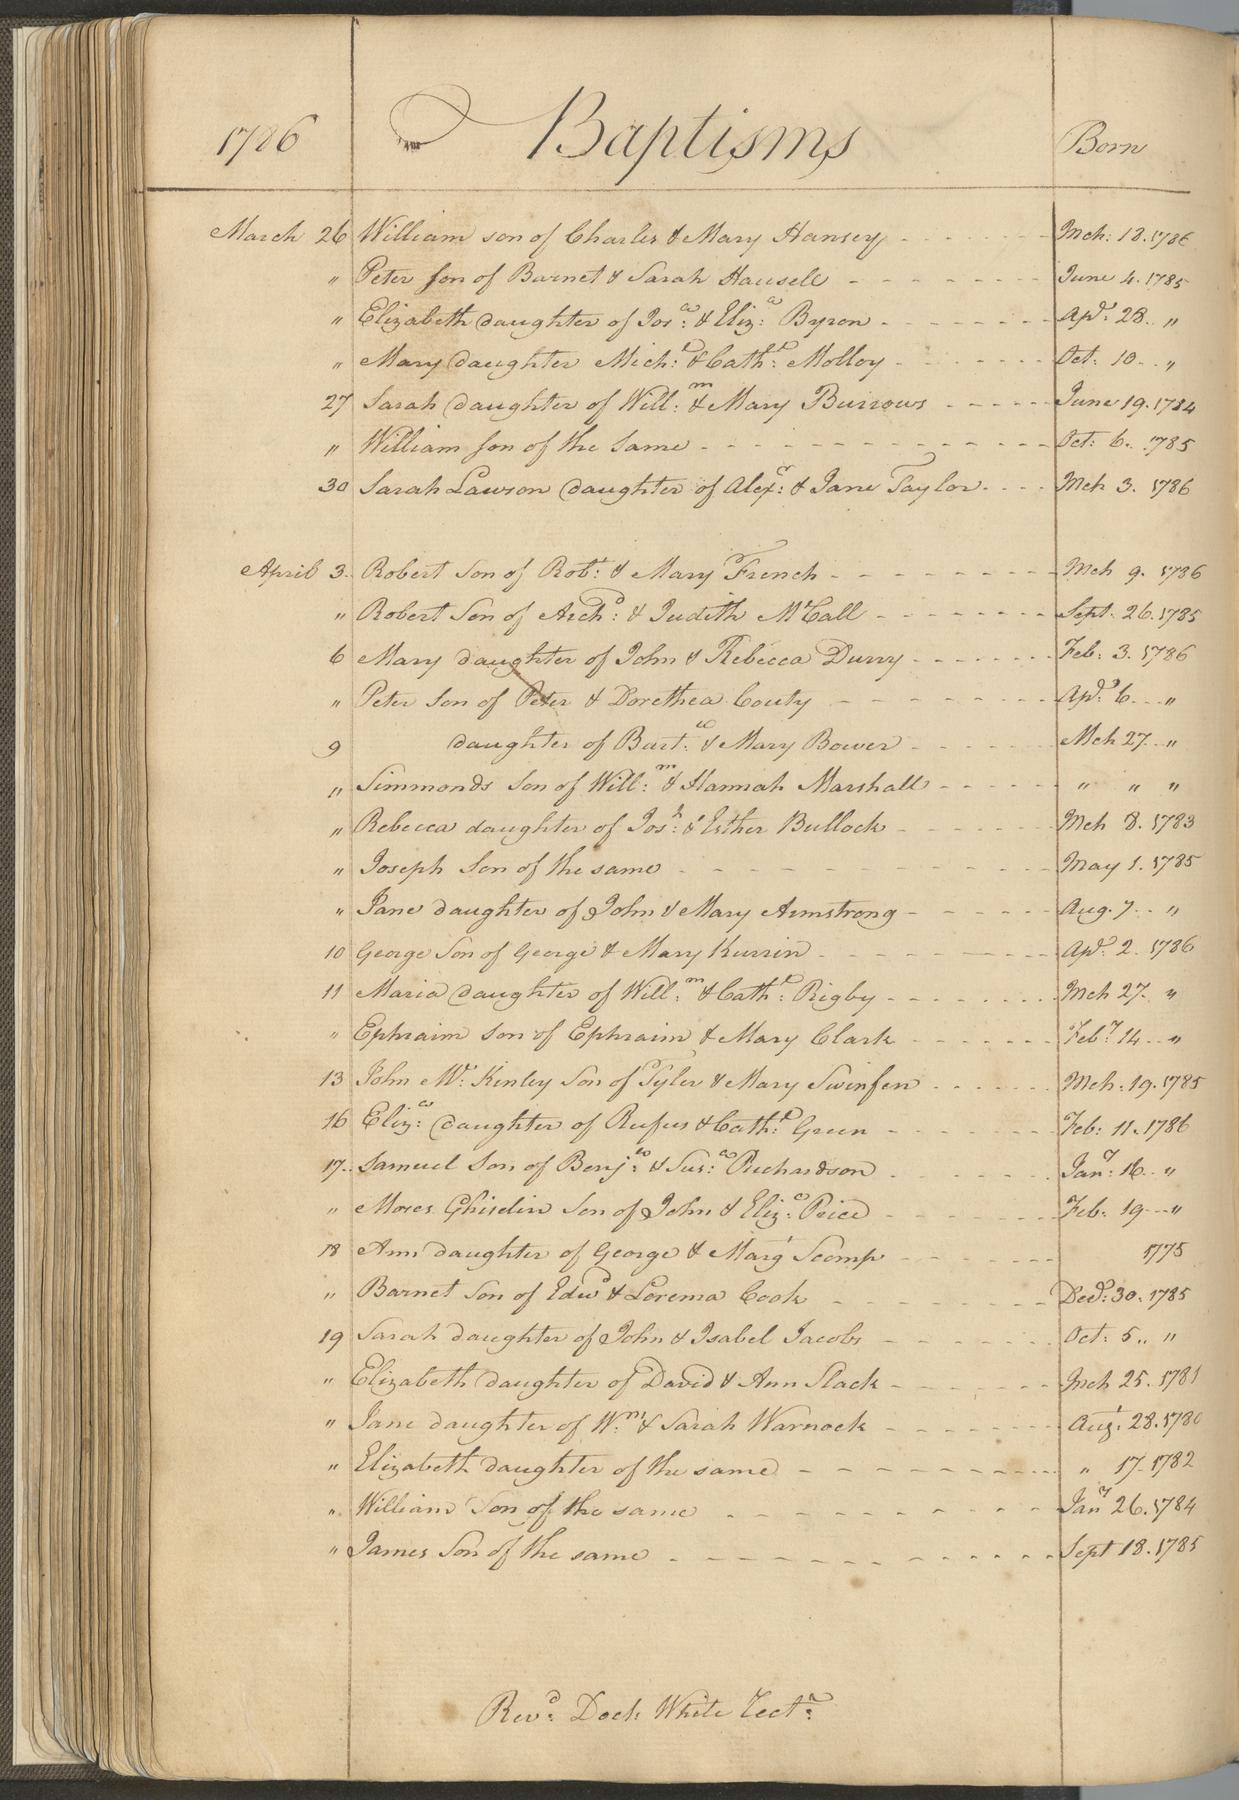 1786 Baptisms Born
March 26 William son of Charles & Mary Hansey Mch: 18. 1786
" Peter son of Barnet & Sarah Hansell June 4. 1785
" Elizabeth daughter of Jos:a & Eliz:a Byron Apl: 28. "
" Mary daughter Mich:l & Cath:e Molloy Oct: 10 "
27 Sarah daughter of Will:m & Mary Burrows June 19. 1784
" William son of the same Oct: 6. 1785
30 Sarah Lawson daughter of Alex:r & Jane Taylor Mch 3. 1786
April 3 Robert Son of Rob:t & Mary French Mch 9. 1786
" Robert Son of Arch:d & Judith McCall Sept. 26. 1785
6 Mary daughter of John & Rebecca Durry Feb: 3. 1786
" Peter Son of Peter & Dorethea Couty Apl: 6 "
9 daughter of Bart:w & Mary Bower Mch 27 "
" Simmonds Son of Will:m & Hannah Marshall " " "
" Rebecca daughter of Jos:h & Esther Bullock Mch 8. 1783
" Joseph Son of the same May 1. 1785
" Jane daughter of John & Mary Armstrong Aug. 7 "
10 George Son of George & Mary Kurrin Apl 2. 1786
11 Maria daughter of Will:m & Cath:e Rigby Mch 27. "
" Ephraim Son of Ephraim & Mary Clark Feb:y 14 "
13 John Mc:Kinley Son of Tyler & Mary Swinfen Mch. 19. 1785
16 Eliz:a daughter of Rufus & Cath:e Green Feb: 11. 1786
17 Samuel Son of Benj:n & Sus:a Richardson Jan:y 16 "
" Moses Ghiselin Son of John & Eliz:a Price Feb. 19 "
18 Ann daughter of George & Margt Scomp 1775
" Barnet Son of Edwd & Lorema Cook Decr: 30. 1785
19 Sarah daughter of John & Isabel Jacobs Oct: 5 "
" Elizabeth daughter of David & Ann Slack Mch 25. 1781
" Jane daughter of Wm & Sarah Warnock Augt. 28. 1780
" Elizabeth daughter of the same " 17. 1782
" William Son of the same Jany 26. 1784
" James Son of the same Sept 18. 1785
Rev:d Doct: White Rect:r